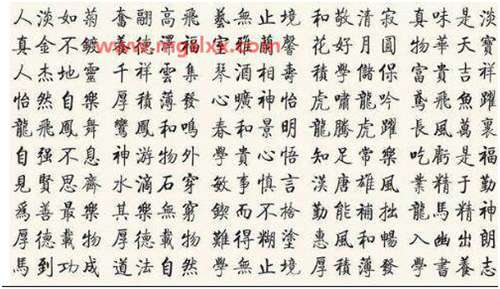 人淡如菊 奮翮高飛 藝無止境 和敬清寂 真味是淡
真金不鍍 德澤福 室雅蘭馨 花好月圓 物華天寶
人杰地靈 千祥雲集 琴酒相壽 積學儲保 富貴吉祥
怡然自樂 厚積薄發 心曠神怡 虎嘯龍吟 鳶飛魚躍
龍飛鳳舞 鸞鳳和鳴 春和景明 龍騰虎躍 長風萬裏
自强不息 神游物外 學貴心悟 知足常樂 吃虧是福
見賢思齊 水滴石穿 敏事慎言 漢唐雄風 業精于勤
爲善最樂 其樂無窮 鍥而不捨 勤能補拙 龍馬精神
厚德載物 厚德載物 難得糊塗 惠風和暢 入幽出朗
馬到功成 道法自然 學無止境 厚積薄發 學書養志